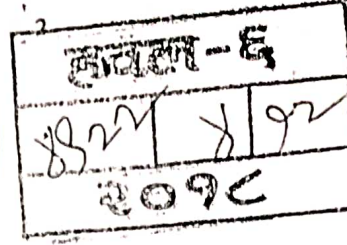 हवल-६
४९२२ ४ १२
२०१८